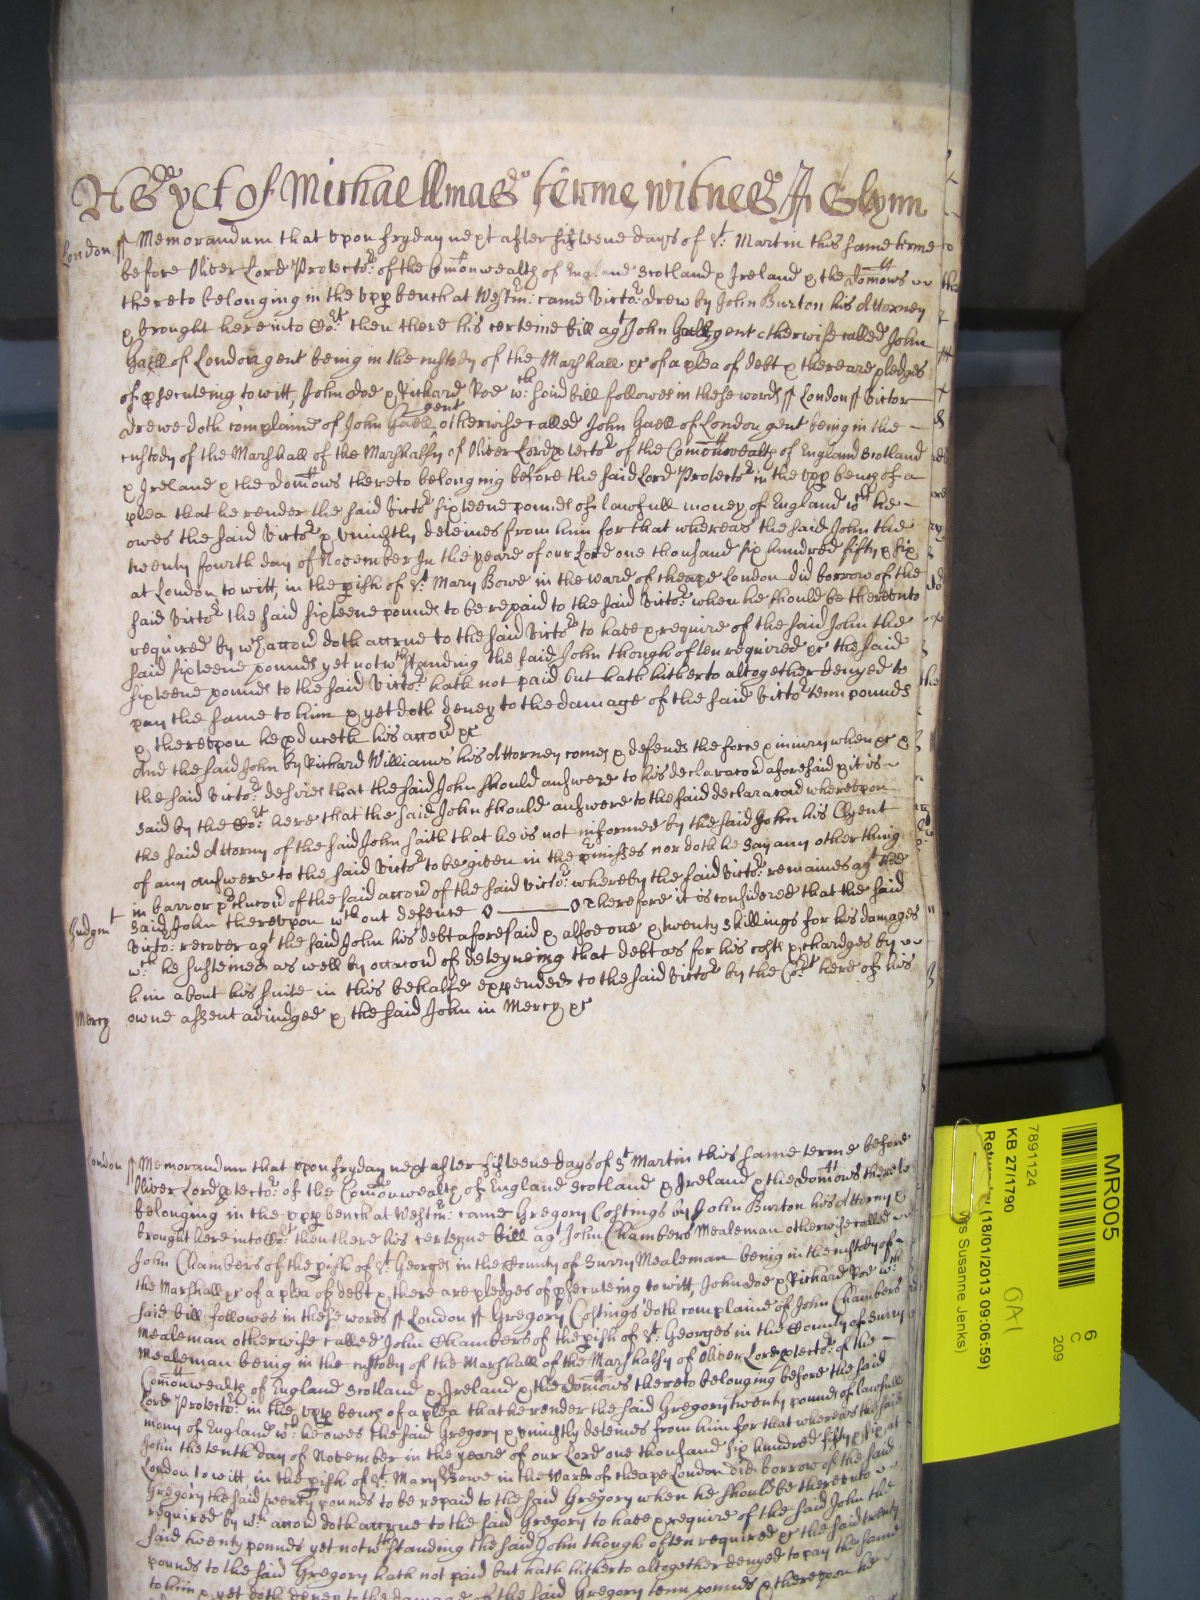 As yet of Michaellmas terme witnes J Glynn
London ss Memorandum that upon fryday next after fifteene days of St Martin this same terme
before Oliver Lord Protector of the Comonwealth of England Scotland & Ireland & the Domions
thereto belonging in the upp bench at Westm: came Victor Drew by John Burton his Attorney
& brought here into Court then there his certeine bill agt John Gaell gent otherwise called John
Gaell of London gent being in the custody of the Marshall &c of a plea of debt & there are pledges
of psecuteing to witt, John Doe & Richard Roe wch said bill followes in these words ss London ss Victor
Drewe doth complaine of John Gaell gent otherwise called John Gaell of London gent being in the
custody of the Marshall of the Marshalsy of Oliver Lord ptector of the Comonwealth of England Scotland
& Ireland & the domions thereto belonging before the said Lord Protector in the upp bench of a
plea that he render the said Victor sixteene pounds of lawfull money of England wch he
owes the said Victor & uniustly deteines from him for that whereas the said John the
twenty fourth day of November In the yeare of our Lord one thousand six hundred fifty & six
at London to witt, in the pish of St Mary Bowe in the ward of cheape London did borrow of the
said Victor the said sixteene pounds to be repaid to the said Victor when he should be thereunto
required by wch accon doth accrue to the said Victor to have & require of the said John the
said sixteene pounds yet notwthstanding the said John though often required &c the said
sixteene pounds to the said Victor hath not paid but hath hitherto altogether denyed to
pay the same to him & yet doth deney to the damage of the said Victor tenn pounds
& thereupon he pduceth his accon &c
And the said John by Richard Williams his Attorney comes & defends the force & iniury when &c &
the said Victor desires that the said John should answere to his declaracon aforesaid & it is
said by the Court here that the said John should answere to the said declaracon whereupon
the said Attorny of the said John saith that he is not informed by the said John his Clyent
of any answere to the said Victor to be given in the pmisses nor doth he say any other thing
in barr or pclucon of the said accon of the said Victor whereby the said Victor remaines agt the
said John thereupon wthout defence Therefore it is considered that the said
Judgmt
Victor recover agt the said John his debt aforesaid & alsoe one & twenty shillings for his damages
wch he susteined as well by occacon of deteyneing that debt as for his costs & chardges by
him about his suite in this behalfe expended to the said Victor by the Cort here of his
Mercy owne assent adiudged & the said John in Mercy &c
London ss Memorandum that upon fryday next after fifteene days of St Martin this same terme before
Oliver Lord ptector of the Comonwealth of England Scotland & Ireland & the domions thereto
belonging in the upp bench at Westm: came Gregory Costings by John Burton his Attorny &
brought here into Court then there his certeyne bill agt John Chambers Mealeman otherwise called
John Chambers of the pish of St Georges in the County of Surry Mealeman being in the custody of
the Marshall &c of a plea of debt & there are pledges of psecuteing to witt, John doe & Richard Roe wch
said bill followes in these words ss London ss Gregory Costings doth complaine of John Chambers
Mealeman otherwise called John Chambers of the pish of St Georges in the County of Surry
Mealeman being in the custody of the Marshall of the Marshalsy of Oliver Lord ptector of the
Comonwealth of England Scotland & Ireland & the domions thereto belonging before the said
Lord Protector in the upp bench of a plea that he render the said Gregory twenty pounds of lawfull
mony of England wch he owes the said Gregory & uniustly deteines from him for that whereas the said
John the tenth day of November in the yeare of our Lord one thousand six hundred fifty & six at
London to witt in the pish of St Mary Bowe in the Ward of cheape London did borrow of the said
Gregory the said twenty pounds to be repaid to the said Gregory when he should be thereunto
required by wch accon doth accrue to the said Gregory to have & require of the said John the
said twenty pounds yet notwthstanding the said John though often required &c the said twenty
pounds to the said Gregory hath not paid but hath hitherto altogether denyed to pay the same
to him & yet doth deney to the damage of the said Gregory tenn pounds & thereupon he
MR005
6
C
209
7891124
KB 27/1790
(18/01/2013 09:06:59)
Ms Susanne Jenks)